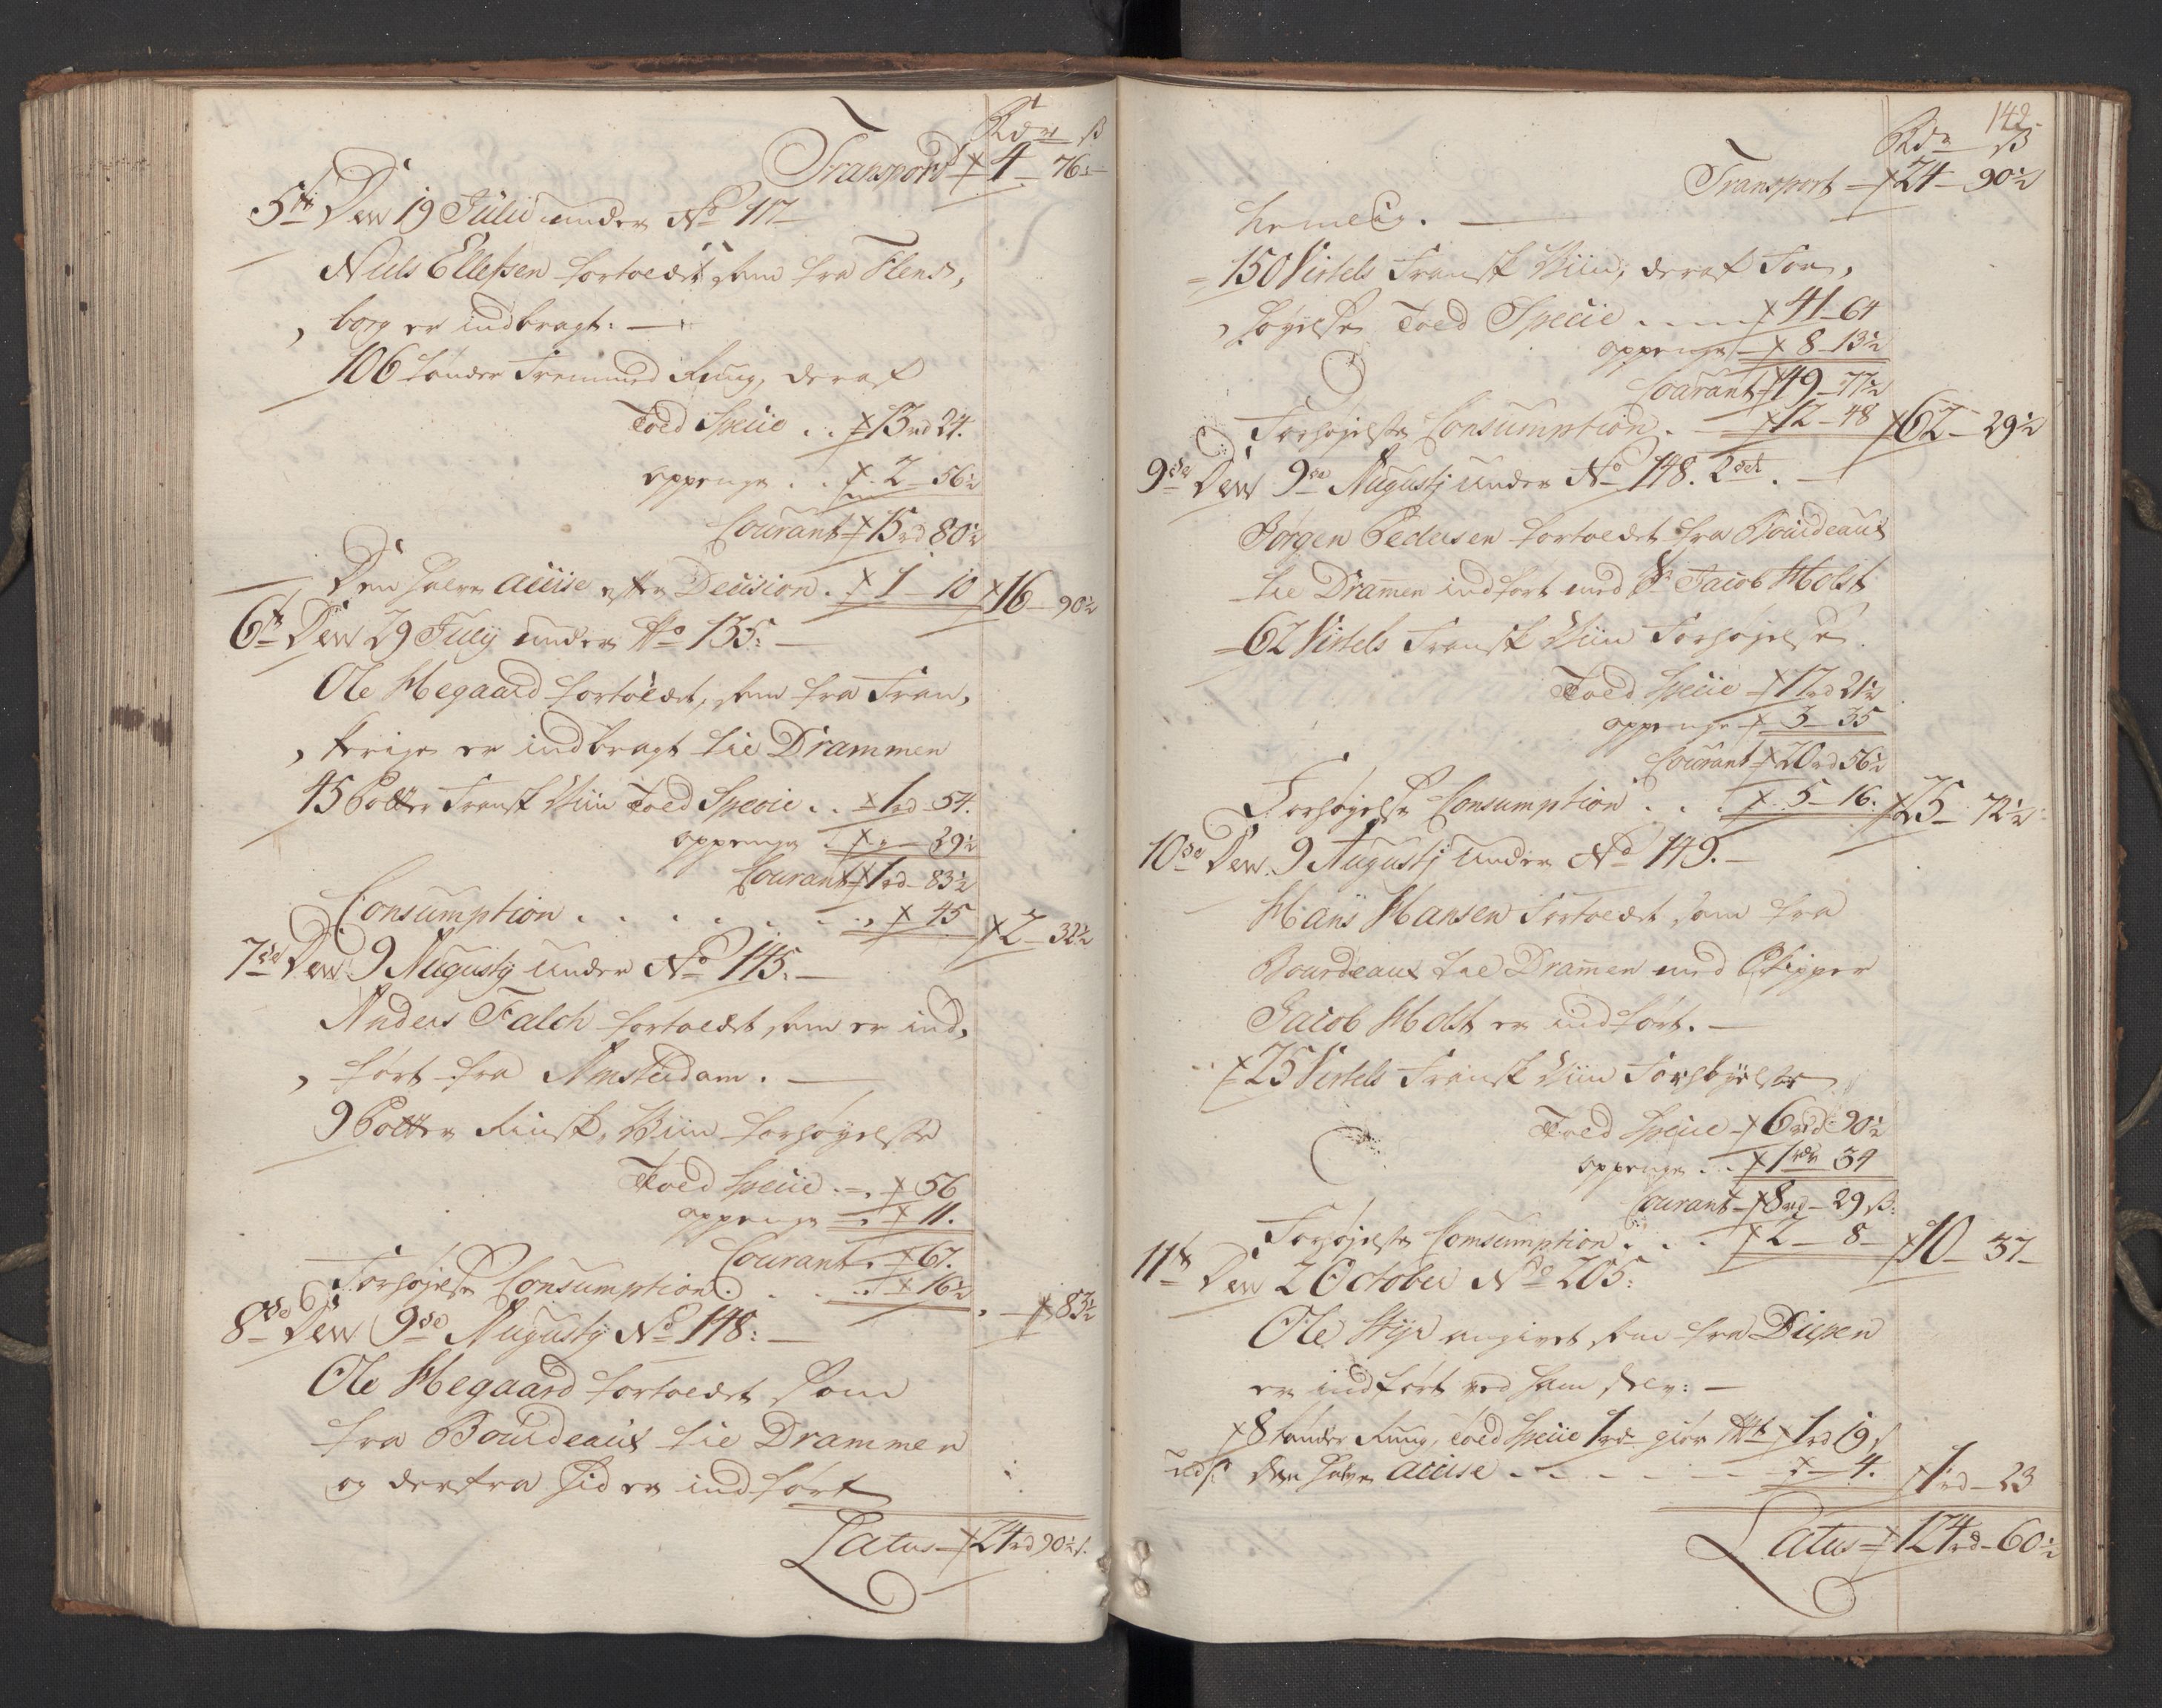 Rdr ß
Transport 4 - 76 -
5te Den 19 Julii under No 117 -
Niels Ellefsen fortoldet som fra Flens,
borg er indbragt: -
106 tønder Fremmed Rug, deraf
Told Specie . . 13rd 24.
oppenge . . 2 - 56½
Courant 15rd 80½
Den halve accise efter Decision . 1 - 10 16 - 90½
6te Den 29 July under No 135: -
Ole Hegaard fortoldet, som fra Fran,
krige er indbragt til Drammen
45 Potter Fransk Viin Told Specie . . 1rd - 54.
oppenge . " - 29½
Courant 1rd - 83½
Consumption . . . . . . . 45 2 - 32½
7de Den 9 Augusty under No 145: -
Anders Falch fortoldet som er ind,
ført fra Amsterdam. -
9 Potter Rinsk Viin forhøyelse
Told Specie . - . 56
oppenge - 11.
Courant . 67.
Forhøjelse Consumption . . . . 16½ 83½
8de Den 9de Augusty No 148: -
Ole Hegaard fortoldet som
fra Bourdeaux til Drammen
og derfra hid er indført
Latus 24rd 90½ ß.
142
Rdr ß
Transport - 24 - 90½
hemelig. -
150 Virtels Fransk Viin, deraf For,
høyelse Told Specie . . . 41 - 64
oppenge - 8 - 13½
Courant 49 - 77½
Forhøjelse Consumption . - 12 - 48 62 - 29½
9de Den 9de Augustj under No 148. 2det . -
Jørgen Pedersen fortoldet fra Bourdeaux
til Dramen indført med Sr Jacob Holst
62 Virtels Fransk Viin Forhøjelse
Told Specie - 17rd 21½
oppenge - 3 - 35
Courant - 20rd 56½
Forhøyelse Consumption . . . 5 - 16. 25 - 72½
10de Den 9 Augustj under No 149. -
Hans Hansen Fortoldet som fra
Bourdeaux til Dramen med Skipper
Jacob Holst er indført. -
25 Virtels Fransk Viin Forhøyelse
Told Specie - 6rd - 90½
oppenge . . 1rdr 34
Courant - 8rd - 29 ß:
Forhøjelse Comsumption . . . 2 - 8 - 10 - 37 -
11te Den 2 October No 205:
Ole Styr angivet som fra Diisen
er indført ved ham selv: -
8 tønder Rug, Told Specie 1rd giør 1rd 19 ß
den halve accise - - - - - 4. 1rd - 23
Latus 124rd - 60½